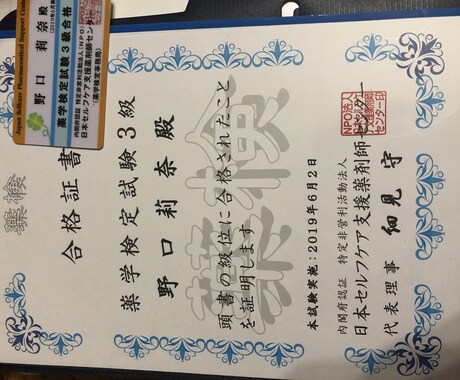 Japan Selfcare Pharmaceutical Support Center
野口 莉奈 殿
薬学検定試験3級合格
内閣府認証 特定非営利活動法人(NPO)
日本セルフケア支援薬剤師センター
(薬学検定事務局)
薬検
合格証書
薬学検定試験3級
野口莉奈 殿
頭書の級位に合格されたこと
を証明します
薬検
本試験実施:2019年6月2日
内閣府認証 特定非営利活動法人
日本セルフケア支援薬剤師センター
代表理事 細見 守